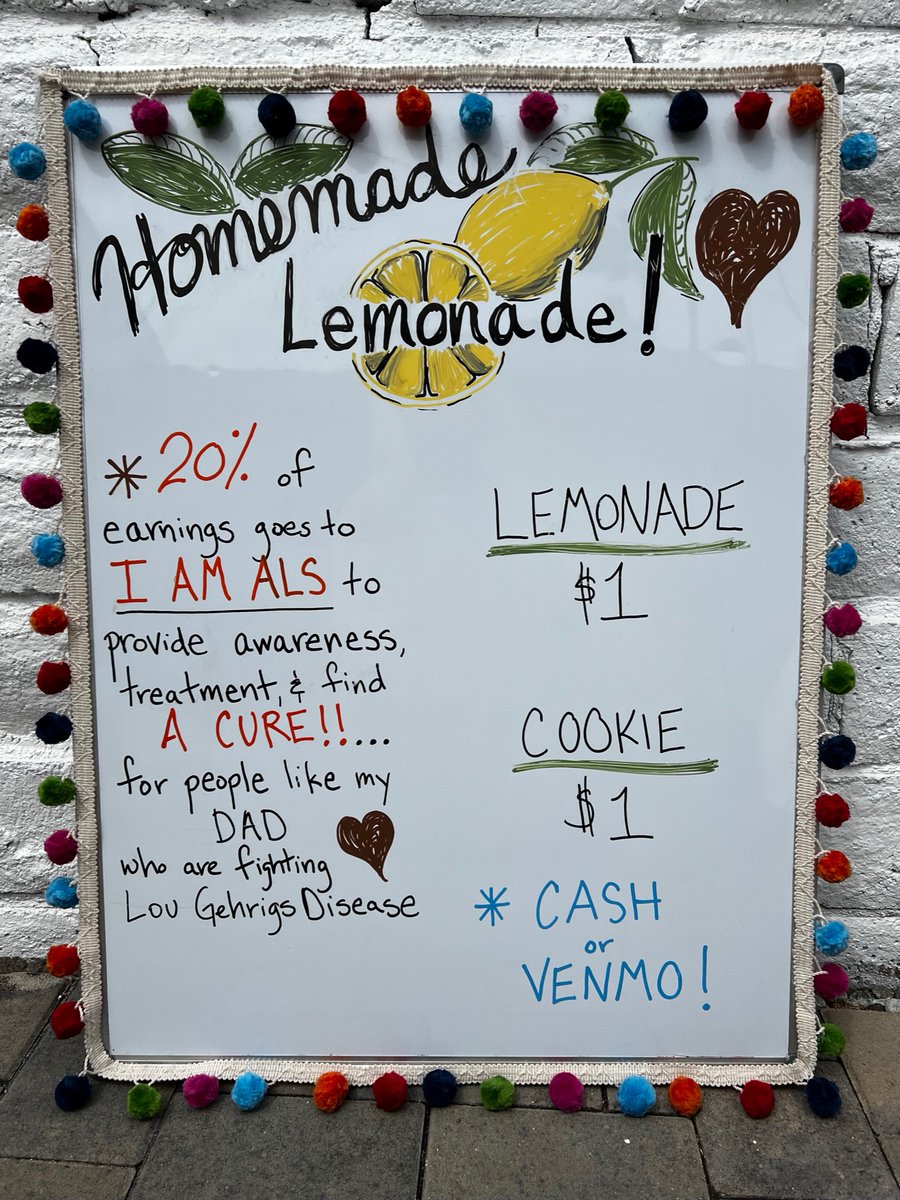 Homemade
Lemonade!
* 20% of
earnings goes to
I AM ALS to
provide awareness,
treatment, & find
A CURE!!...
for people like my
DAD
who are fighting
Lou Gehrigs Disease
LEMONADE
$1
COOKIE
$1
* CASH
or
VENMO!